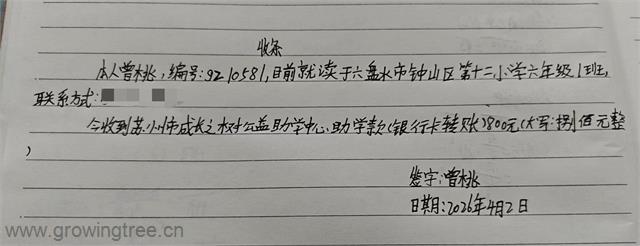 收条
本人曾桃,编号:9210581,目前就读于六盘水市钟山区第十二小学六年级1班,
联系方式:
今收到苏州市成长之树公益助学中心助学款(银行卡转账)800元(大写:捌佰元整
)
签字:曾桃
日期:2026年4月2日
www.growingtree.cn